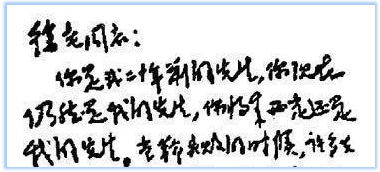 徐老同志：
你是我二十年前的先生，你现在
仍然是我的先生，你将来必定还是
我的先生。当革命失败的时候，许多